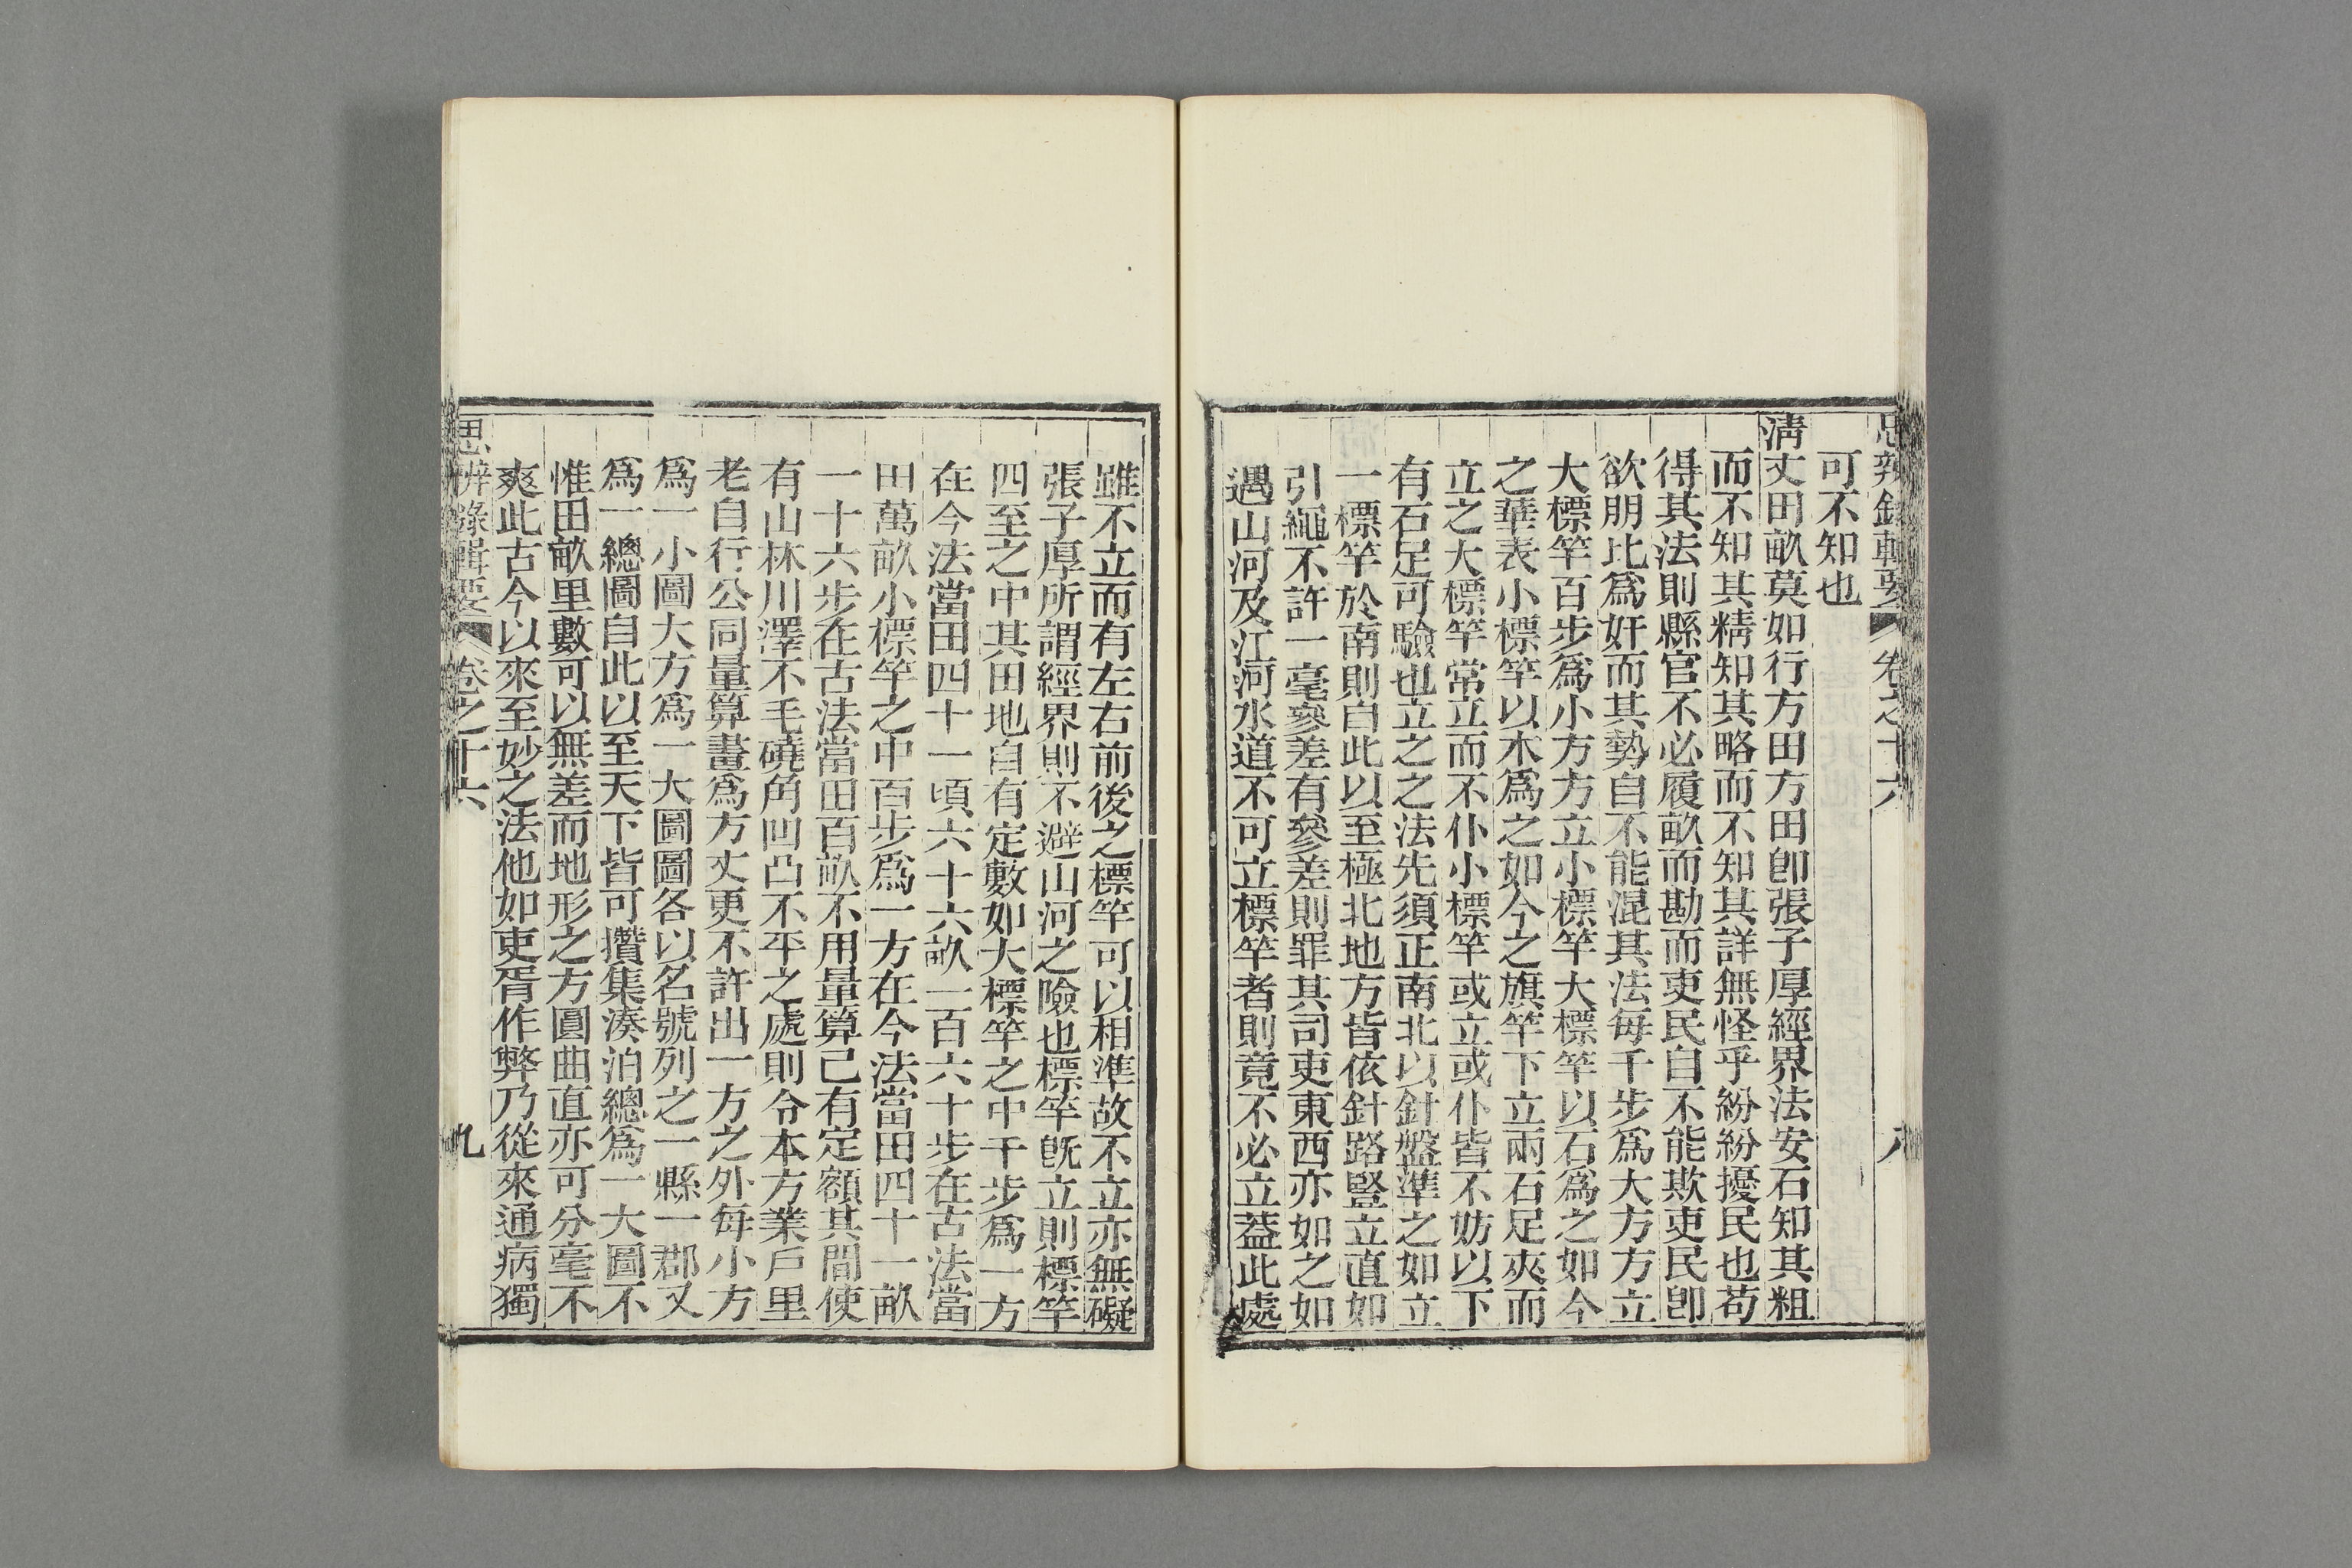 思辨錄輯要 卷之十六 八
可不知也
淸丈田畝莫如行方田方田卽張子厚經界法安石知其粗
而不知其精知其略而不知其詳無怪乎紛紛擾民也苟
得其法則縣官不必履畝而勘而吏民自不能欺吏民卽
欲朋比爲奸而其勢自不能混其法每千步爲大方方立
大標竿百步爲小方方立小標竿大標竿以石爲之如今
之華表小標竿以木爲之如今之旗竿下立兩石足夾而
立之大標竿常立而不仆小標竿或立或仆皆不妨以下
有石足可驗也立之之法先須正南北以針盤準之如立
一標竿於南則自此以至極北地方皆依針路豎立直如
引繩不許一毫參差有參差則罪其司吏東西亦如之如
遇山河及江河水道不可立標竿者則竟不必立葢此處
雖不立而有左右前後之標竿可以相準故不立亦無礙
張子厚所謂經界則不避山河之險也標竿旣立則標竿
四至之中其田地自有定數如大標竿之中千步爲一方
在今法當田四十一頃六十六畝一百六十步在古法當
田萬畝小標竿之中百步爲一方在今法當田四十一畝
一十六步在古法當田百畝不用量算已有定額其間使
有山林川澤不毛磽角凹凸不平之處則令本方業戶里
老自行公同量算畫爲方丈更不許出一方之外每小方
爲一小圖大方爲一大圖圖各以名號列之一縣一郡又
爲一總圖自此以至天下皆可攢集湊泊總爲一大圖不
惟田畝里數可以無差而地形之方圓曲直亦可分毫不
爽此古今以來至妙之法他如吏胥作弊乃從來通病獨
思辨錄輯要 卷之十六 九